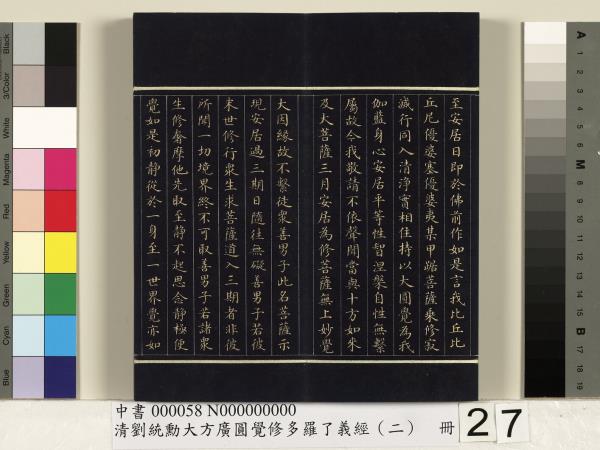 至安居日即於佛前作如是言我比丘比
丘尼優婆塞優婆夷某甲踞菩薩乘修寂
滅行同入清淨實相住持以大圓覺為我
伽藍身心安居平等性智涅槃自性無繫
屬故今我敬請不依聲聞當與十方如來
及大菩薩三月安居為修菩薩無上妙覺
大因緣故不繫徒衆善男子此名菩薩示
現安居過三期日隨往無礙善男子若彼
末世修行衆生求菩薩道入三期者非彼
所聞一切境界終不可取善男子若諸衆
生修奢摩他先取至靜不起思念靜極便
覺如是初靜從於一身至一世界覺亦如
Black
3/Color
White
Magenta
Red
Yellow
Green
Cyan
Blue
A
1
2
3
4
5
6
M
8
9
10
11
12
13
14
15
B
17
18
19
中書 000058 N000000000
清劉統勳大方廣圓覺修多羅了義經（二） 冊 27